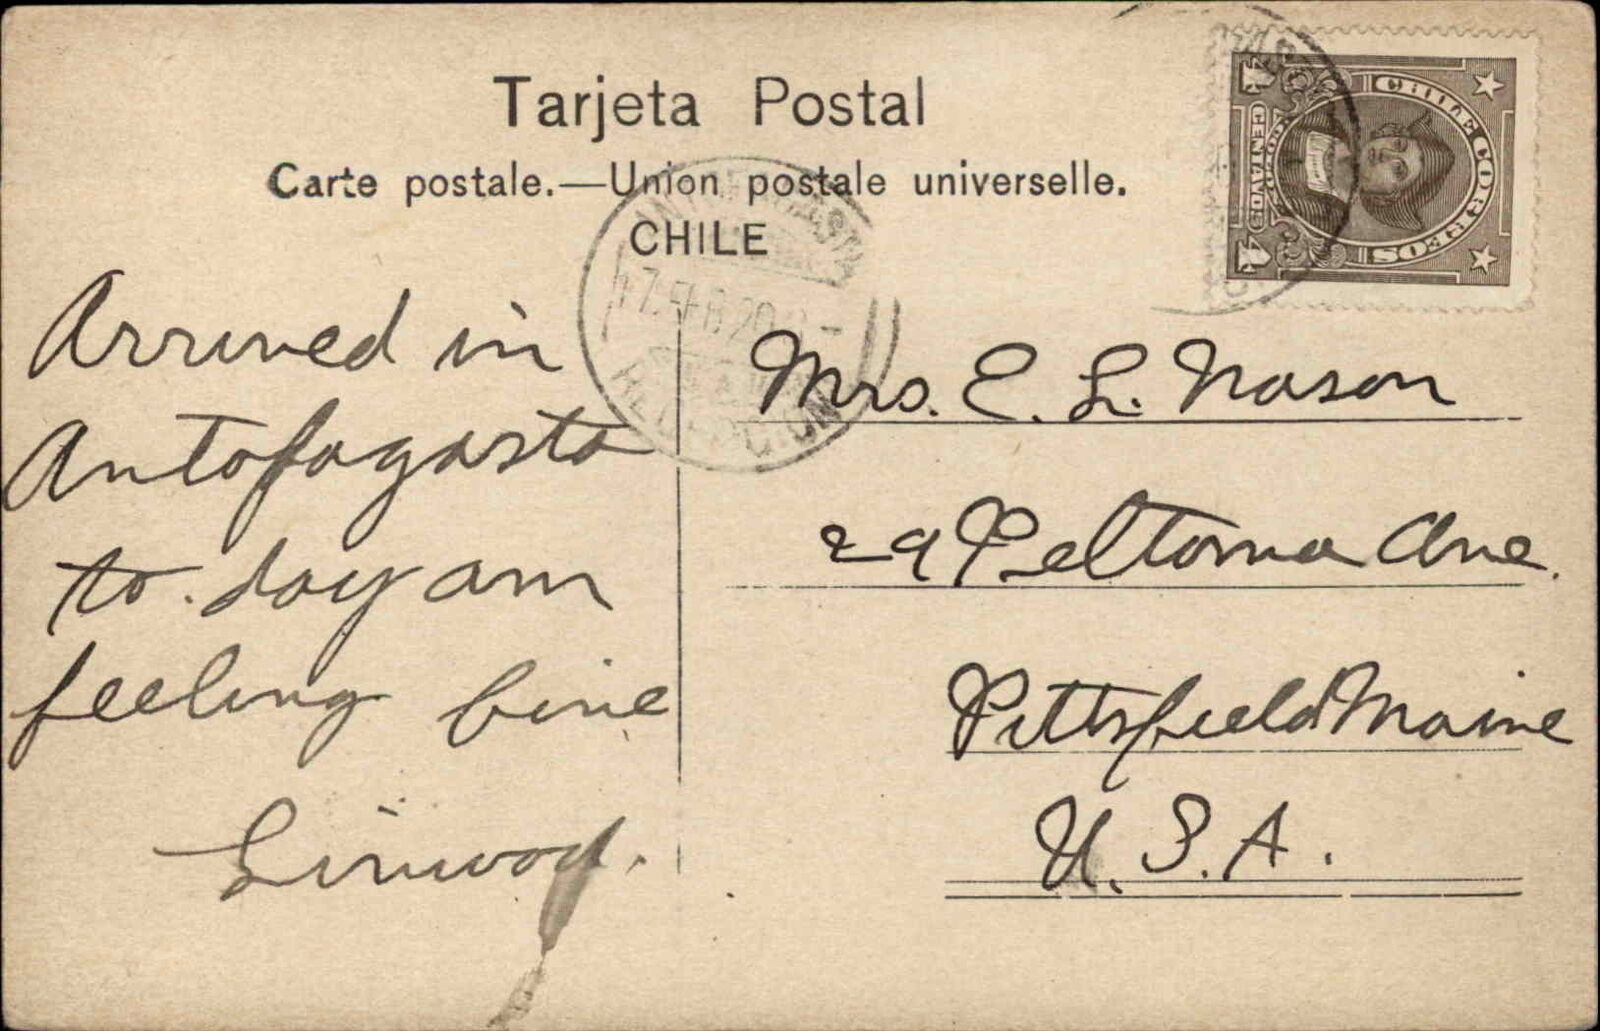 Tarjeta Postal
Carte postale.—Union postale universelle.
CHILE
CHILE CORREOS
4 CENTAVOS 4
7. FEB 20
Arrived in
Antofagasta
to. day am
feeling fine
Linwood.
Mrs. E. L. Nason
29 Peltoma Ave.
Pittsfield Maine
U. S. A.